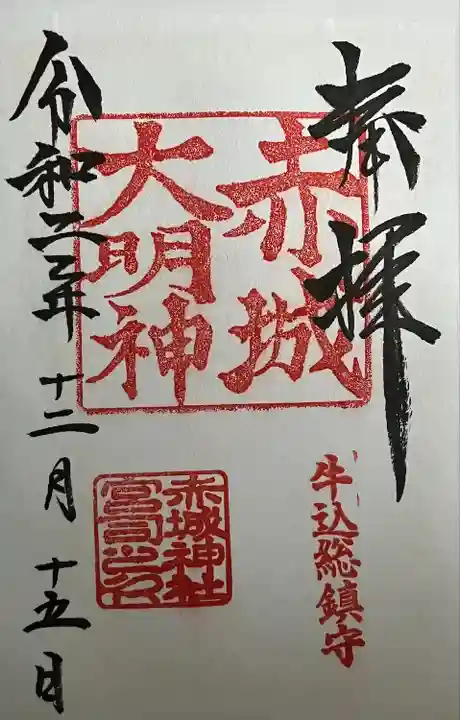 奉拝
赤城
大明神
牛込総鎮守
赤城神社
宮司之印
令和三年十二月十五日